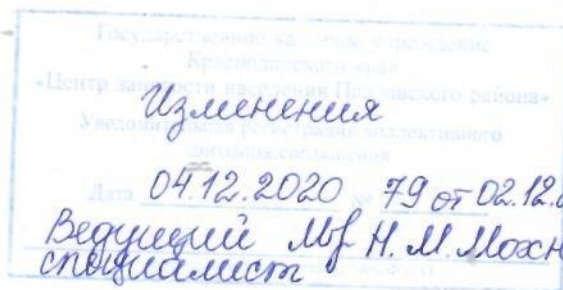 Государственное казенное учреждение
Краснодарского края
«Центр занятости населения Павловского района»
Изменения
Уведомительная регистрация коллективного
договора, соглашения
Дата 04.12.2020 № 79 от 02.12.
Ведущий Н. М. Мохн
специалист